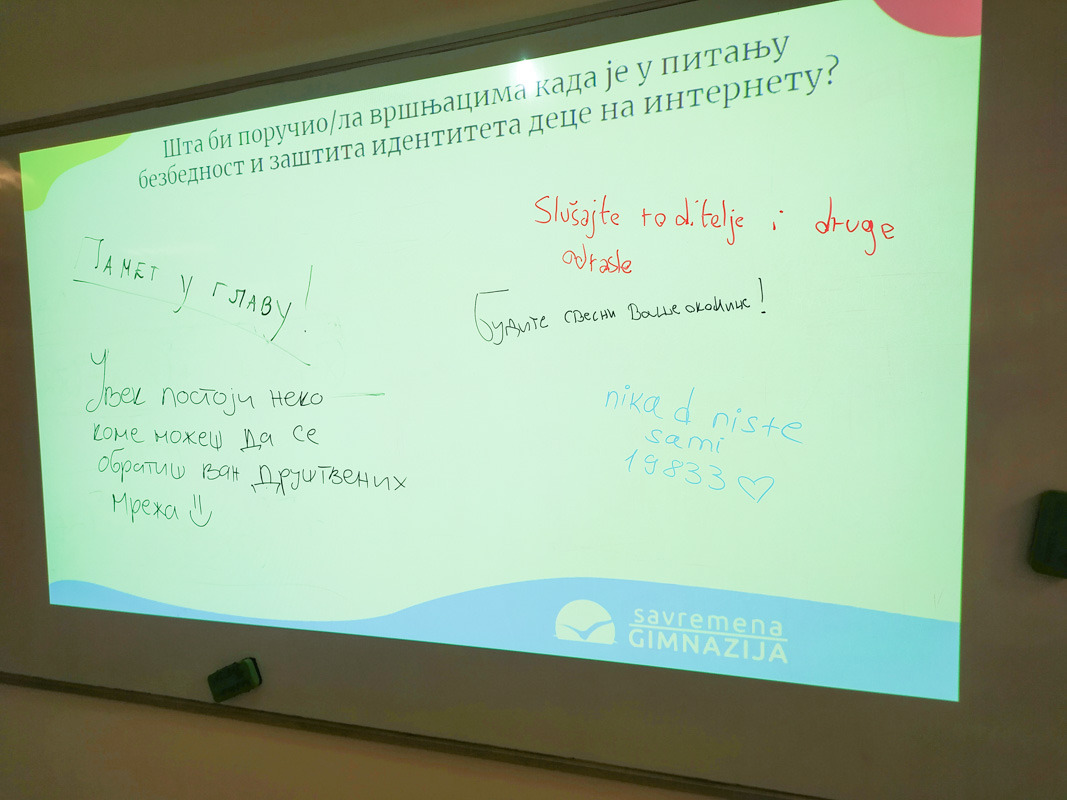 Шта би поручио/ла вршњацима када је у питању
безбедност и заштита идентитета деце на интернету?
Slušajte roditelje i druge
odrasle
Памет у главу!
Будите свесни Ваше околине!
Увек постоји неко
коме можеш да се
обратиш ван друштвених
мрежа
nikad niste
sami
19833 ♡
savremena
GIMNAZIJA